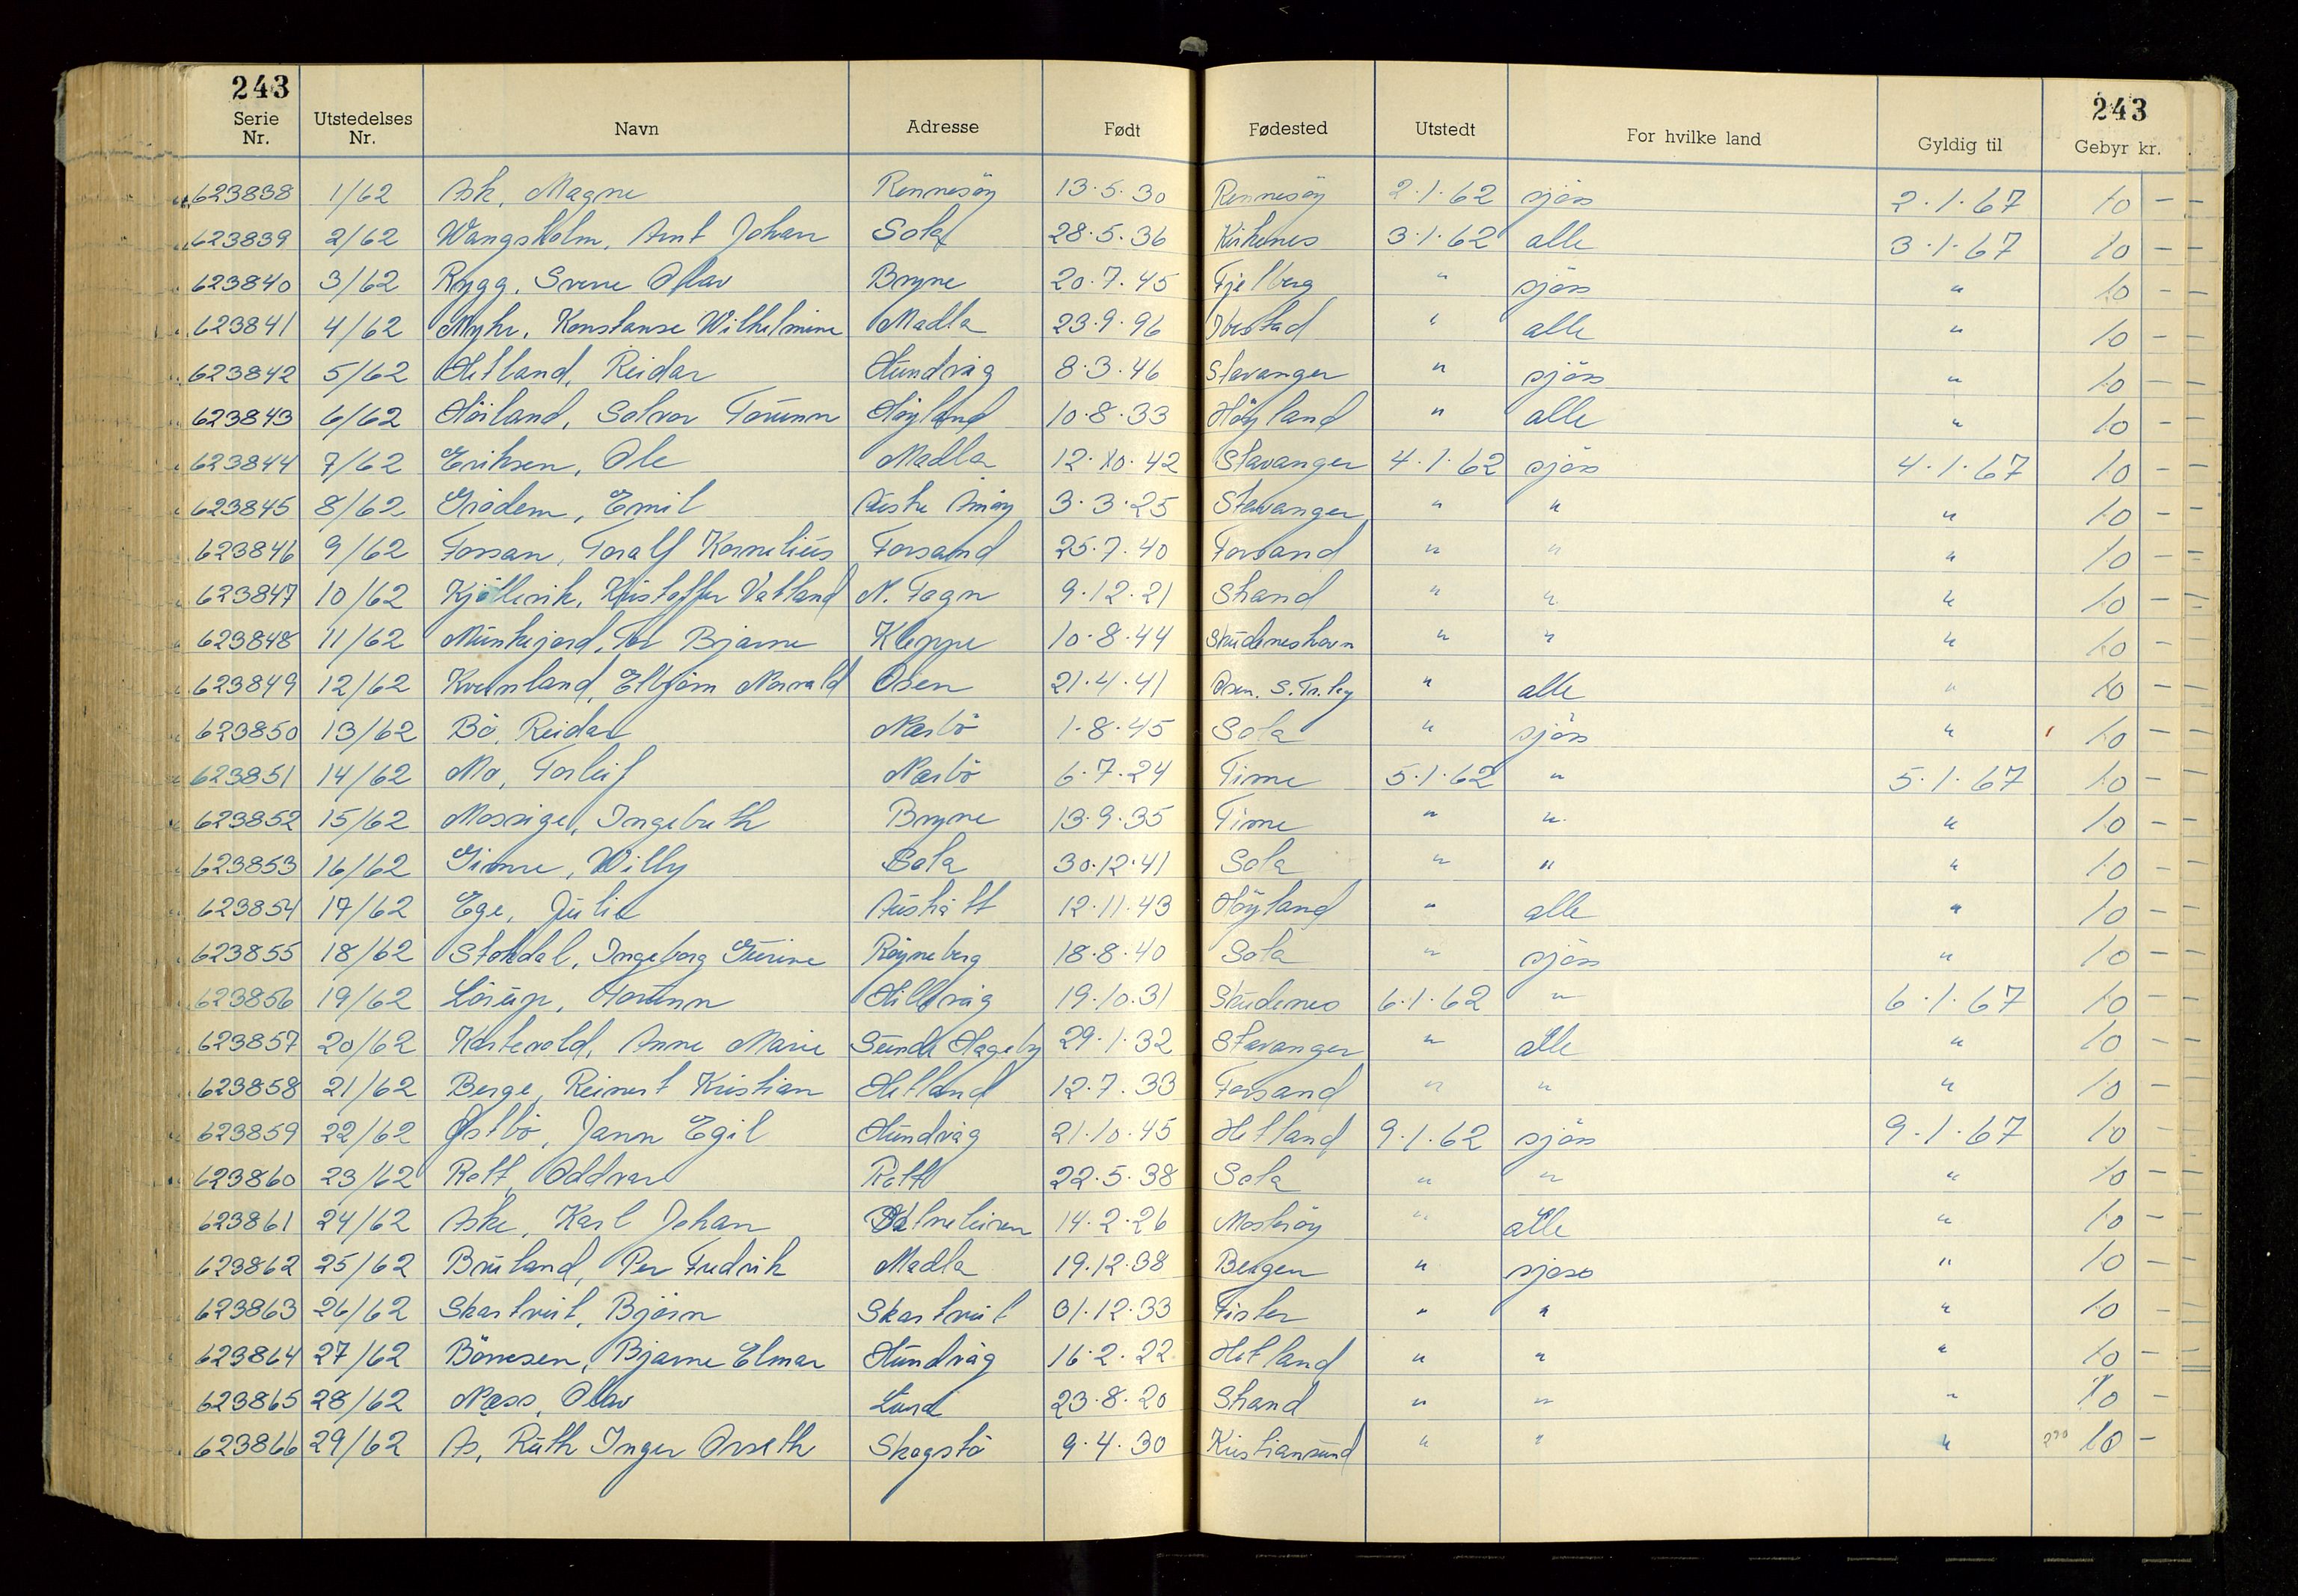 243 243
Serie Nr. Utstedelses Nr. Navn Adresse Født Fødested Utstedt For hvilke land Gyldig til Gebyr kr.
623838 1/62 Ask, Magne Rennesöy 13.5.30 Rennesöy 2.1.62 sjöss 2.1.67 10 —
623839 2/62 Wangsholm, Arnt Johan Sola 28.5.36 Kirkenes 3.1.62 alle 3.1.67 10 —
623840 3/62 Rygg, Svene Olav Bryne 20.7.45 Fjelberg " sjöss " 10 —
623841 4/62 Myhr, Konstanse Wilhelmine Madla 23.9.96 Ibestad " alle " 10 —
623842 5/62 Hetland, Reidar Hundvåg 8.3.46 Stavanger " sjöss " 10 —
623843 6/62 Höiland, Solvor Torunn Höyland 10.8.33 Höyland " alle " 10 —
623844 7/62 Eriksen, Ole Madla 12.10.42 Stavanger 4.1.62 sjöss 4.1.67 10 —
623845 8/62 Grödem, Emil Åmöy 3.3.25 Stavanger " " " 10 —
623846 9/62 Forsan, Toralf Kornelius Forsand 25.7.40 Forsand " " " 10 —
623847 10/62 Kjöllevik, Kristoffer Vatland N. Fogn 9.12.21 Strand " " " 10 —
623848 11/62 Munkejord, Tor Bjarne Kleppe 10.8.44 Skudeneshavn " " " 10 —
623849 12/62 Kvernland, Elbjörn Norvald Osen 21.4.41 Osen. S. Tr.lag " alle " 10 —
623850 13/62 Bö, Reidar Nærbö 1.8.45 Sola " sjöss " 10 —
623851 14/62 Mo, Torleif Nærbö 6.7.24 Time 5.1.62 " 5.1.67 10 —
623852 15/62 Mossige, Ingebreth Bryne 13.9.35 Time " " " 10 —
623853 16/62 Gimre, Willy Sola 30.12.41 Sola " " " 10 —
623854 17/62 Ege, Julie Austrått 12.11.43 Höyland " alle " 10 —
623855 18/62 Stokdal, Ingeborg Gurine Röyneberg 18.8.40 Sola " sjöss " 10 —
623856 19/62 Lörup, Torunn Hillevåg 19.10.31 Skudenes 6.1.62 " 6.1.67 10 —
623857 20/62 Kartevold, Anne Marie Sunde Hageby 29.1.32 Stavanger " alle " 10 —
623858 21/62 Berge, Reinert Kristian Hetland 12.7.33 Forsand " " " 10 —
623859 22/62 Østbö, Jann Egil Hundvåg 21.10.45 Hetland 9.1.62 sjöss 9.1.67 10 —
623860 23/62 Rott, Oddvar Rott 22.5.38 Sola " " " 10 —
623861 24/62 Aske, Karl Johan 14.2.26 Mosteröy " alle " 10 —
623862 25/62 Bruland, Per Fredrik Madla 19.12.38 Bergen " sjöss " 10 —
623863 26/62 Skartveit, Björn Skartveit 31.12.33 Fister " " " 10 —
623864 27/62 Börresen, Bjarne Elmar Hundvåg 16.2.22 Hetland " " " 10 —
623865 28/62 Næss, Olav 23.8.20 Strand " " " 10 —
623866 29/62 Ås, Ruth Inger Orseth Skogstö 9.4.30 Kristiansund " " " 290 10 —